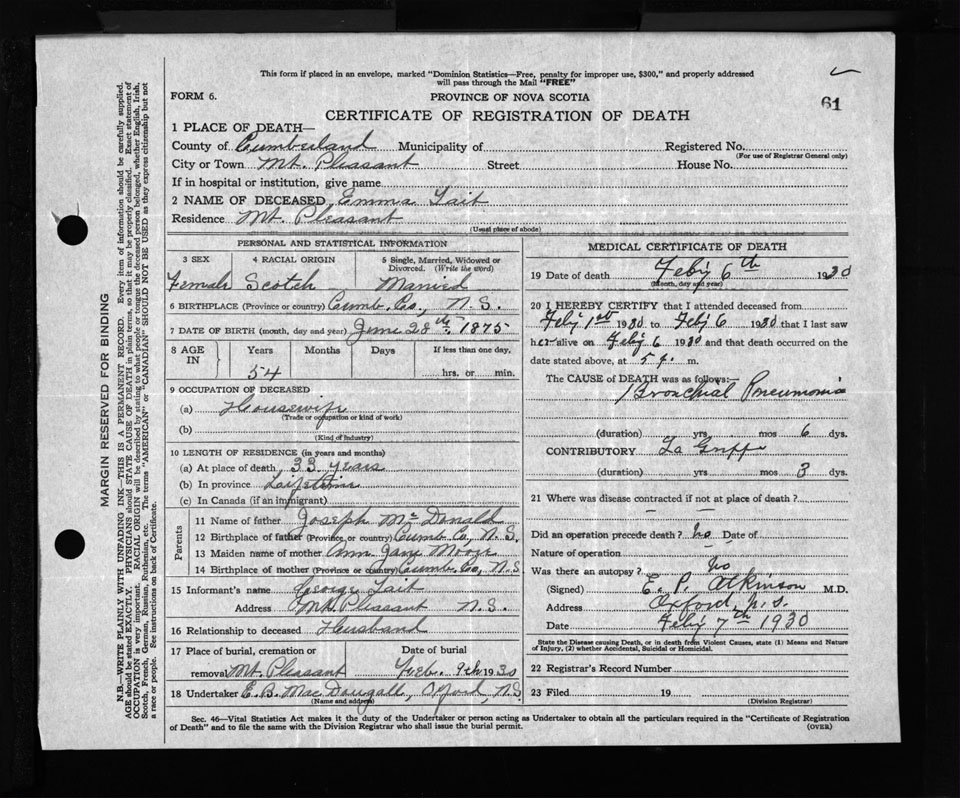 This form if placed in an envelope, marked "Dominion Statistics—Free, penalty for improper use, $300," and properly addressed
will pass through the Mail "FREE"
FORM 6.
PROVINCE OF NOVA SCOTIA
61
CERTIFICATE OF REGISTRATION OF DEATH
1 PLACE OF DEATH—
County of Cumberland Municipality of Registered No.
(For use of Registrar General only)
City or Town Mt. Pleasant Street House No.
If in hospital or institution, give name
2 NAME OF DECEASED Emma Tait
Residence Mt. Pleasant
(Usual place of abode)
PERSONAL AND STATISTICAL INFORMATION
3 SEX 4 RACIAL ORIGIN 5 Single, Married, Widowed or
Divorced. (Write the word)
Female Scotch Married
6 BIRTHPLACE (Province or country) Cumb. Co., N.S.
7 DATE OF BIRTH (month, day and year) June 28th, 1875
8 AGE IN Years Months Days If less than one day,
54 hrs. or min.
9 OCCUPATION OF DECEASED
(a) Housewife
(Trade or occupation or kind of work)
(b)
(Kind of Industry)
10 LENGTH OF RESIDENCE (in years and months)
(a) At place of death, 33 years
(b) In province Lifetime
(c) In Canada (if an immigrant)
Parents
11 Name of father Joseph McDonald
12 Birthplace of father (Province or country) Cumb. Co, N.S.
13 Maiden name of mother Ann Jane Moore
14 Birthplace of mother (Province or country) Cumb. Co, N.S
15 Informant's name George Tait
Address Mt. Pleasant N.S.
16 Relationship to deceased Husband
17 Place of burial, cremation or Date of burial
removal Mt. Pleasant Feb. 9th 1930
18 Undertaker E. B. MacDougall, Oxford, N.S
(Name and address)
MEDICAL CERTIFICATE OF DEATH
19 Date of death Feby 6th 1930
(Month, day and year)
20 I HEREBY CERTIFY that I attended deceased from
Feby 1st 1930 to Feby 6 1930 that I last saw
her alive on Feby 6 1930 and that death occurred on the
date stated above, at 5 m.
The CAUSE of DEATH was as follows:
Bronchial Pneumonia
(duration) yrs mos 6 dys.
CONTRIBUTORY La Grippe
(duration) yrs mos 3 dys.
21 Where was disease contracted if not at place of death ?
Did an operation precede death ? No Date of
Nature of operation
Was there an autopsy ? No
(Signed) E. P. Atkinson M.D.
Address Oxford, N.S.
Date Feby 7th 1930
State the Disease causing Death, or in death from Violent Causes, state (1) Means and Nature
of Injury, (2) whether Accidental, Suicidal or Homicidal.
22 Registrar's Record Number
23 Filed 19
(Division Registrar)
Sec. 46—Vital Statistics Act makes it the duty of the Undertaker or person acting as Undertaker to obtain all the particulars required in the "Certificate of Registration
of Death" and to file the same with the Division Registrar who shall issue the burial permit.
(OVER)
MARGIN RESERVED FOR BINDING
N.B.—WRITE PLAINLY WITH UNFADING INK—THIS IS A PERMANENT RECORD. Every item of information should be carefully supplied.
AGE should be stated EXACTLY. PHYSICIANS should STATE CAUSE OF DEATH in plain terms, so that it may be properly classified. Exact statement of
OCCUPATION is very important. RACIAL ORIGIN will be described by stating to what people or tongue the deceased person belonged, whether English, Irish,
Scotch, French, German, Russian, Ruthenian, etc. The terms "AMERICAN" or "CANADIAN" SHOULD NOT BE USED as they express citizenship but not
a race or people. See instructions on back of Certificate.